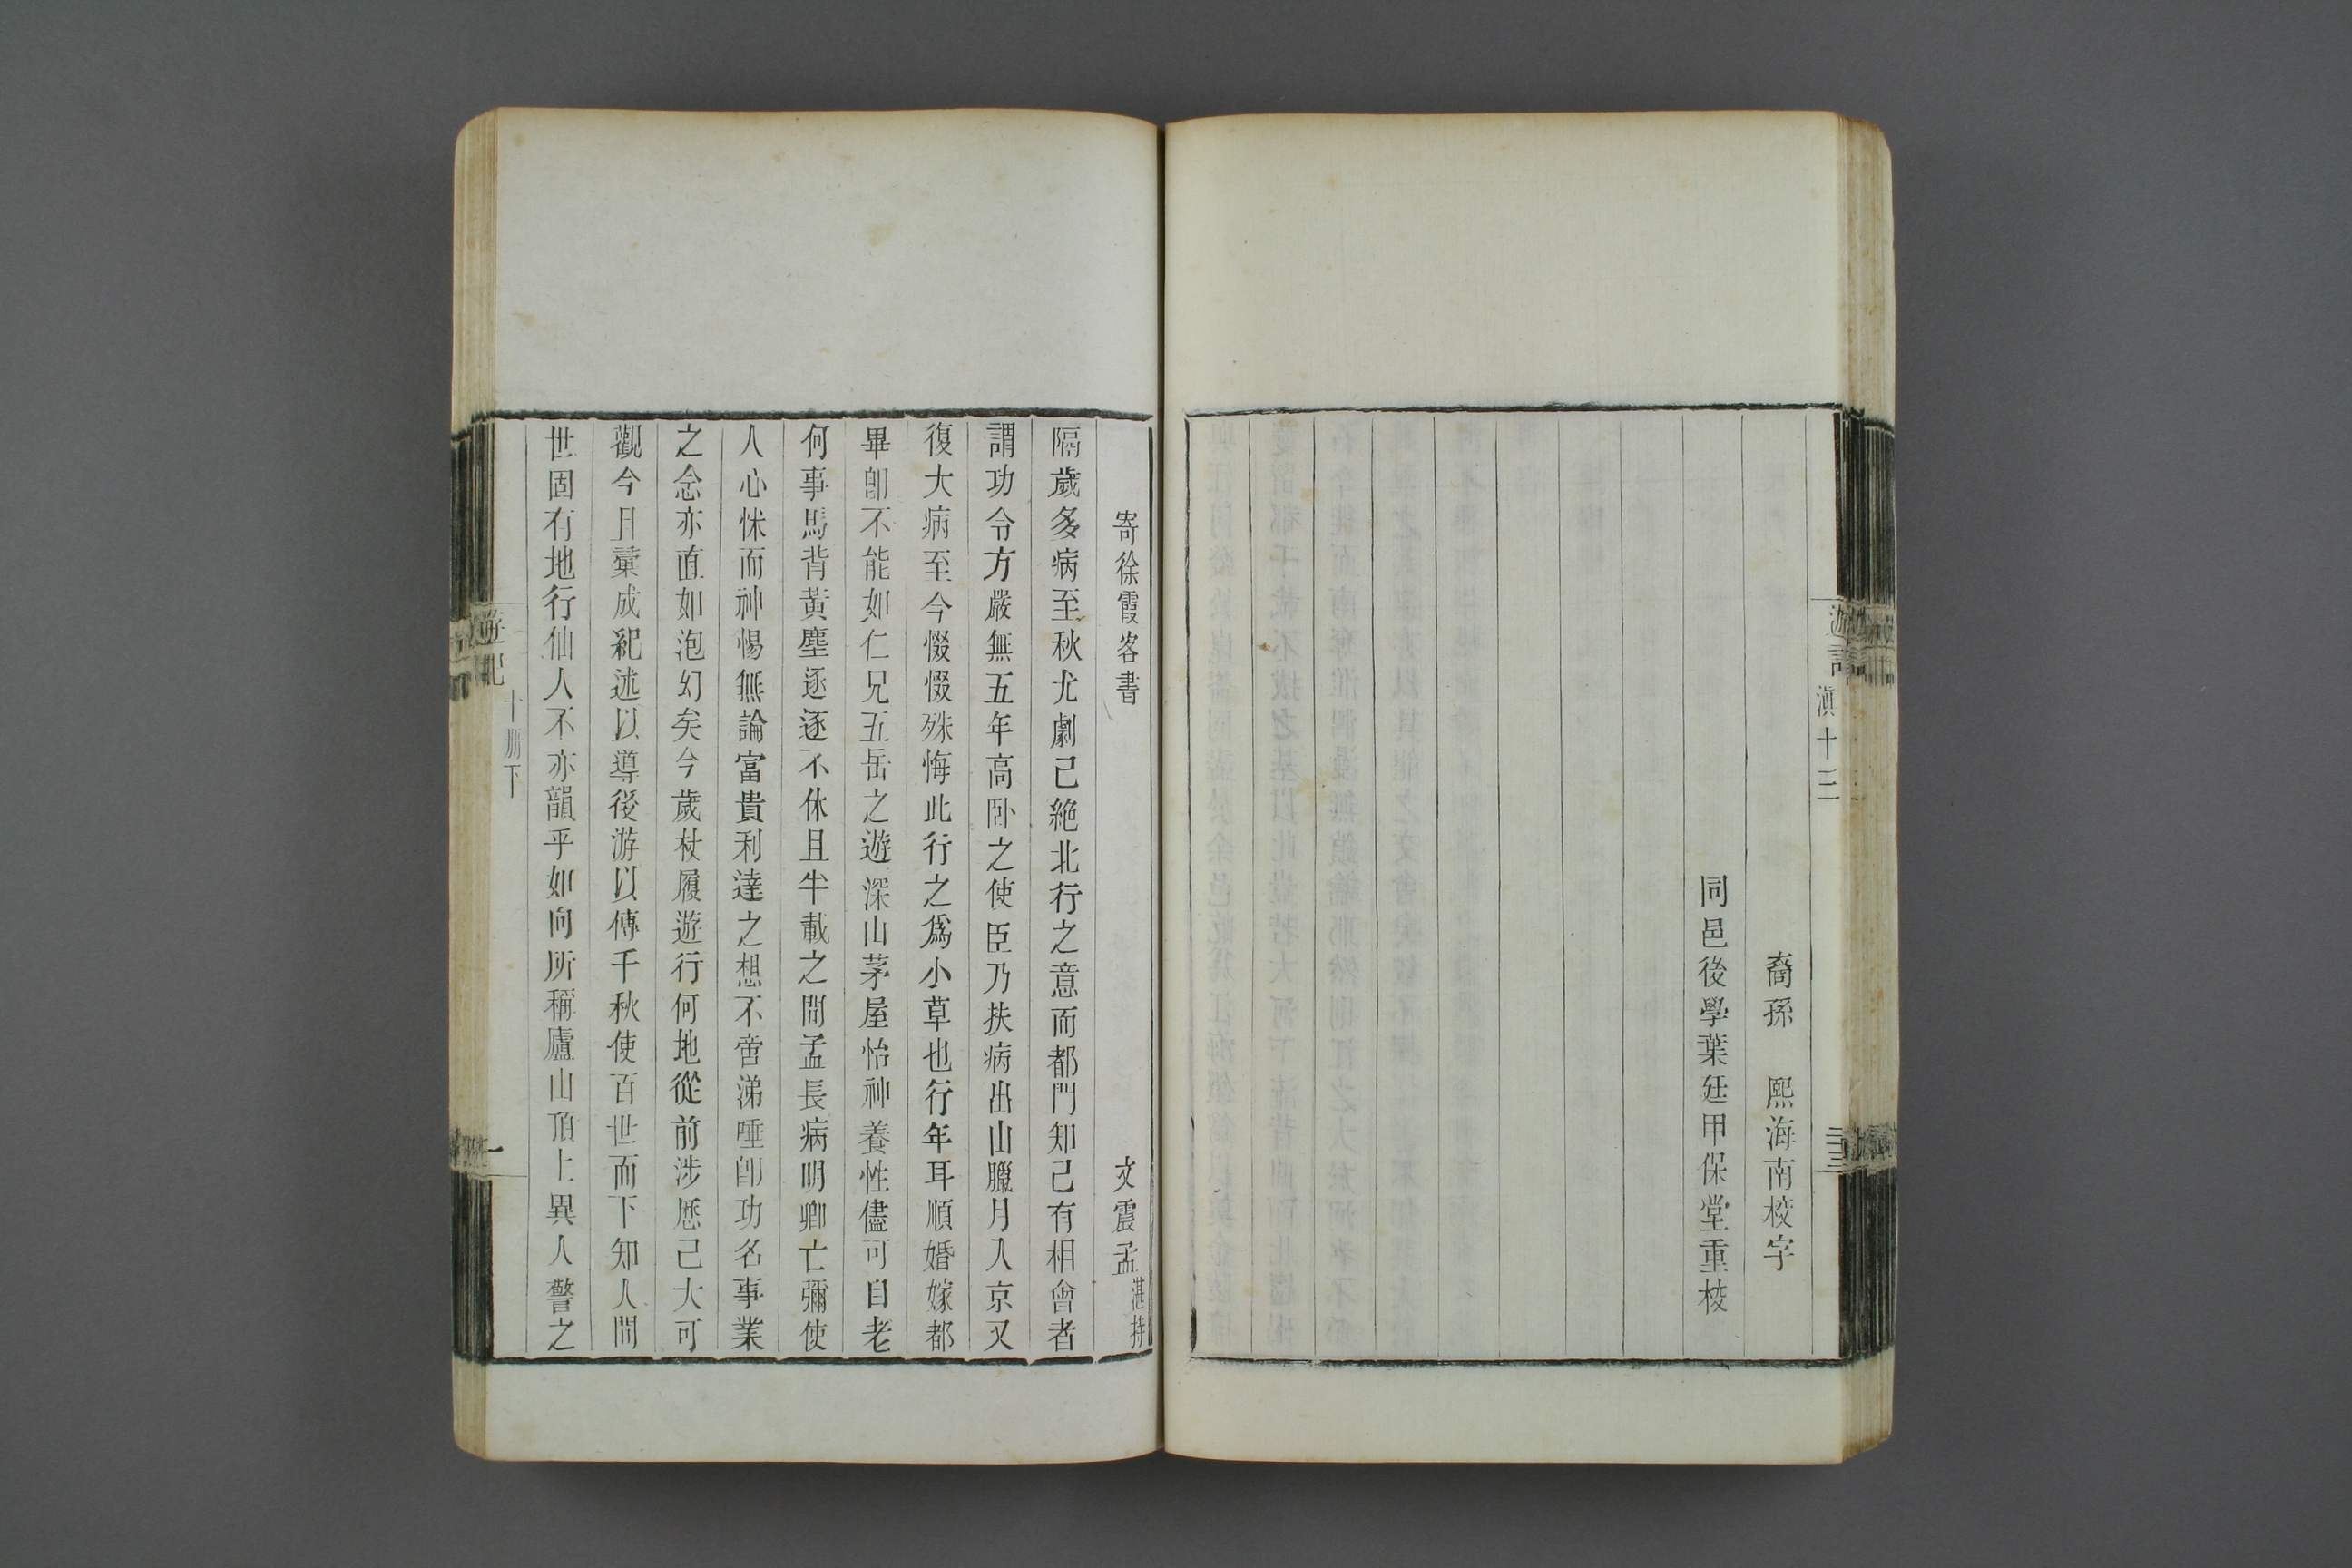 遊記 滇十三 二十三
裔孫 熙海南校字
同邑後學葉廷甲保堂重校
寄徐霞客書 文震孟湛持
隔歲多病至秋尤劇己絶北行之意而都門知己有相會者
謂功令方嚴無五年高卧之使臣乃扶病出山臘月入京又
復大病至今惙惙殊悔此行之爲小草也行年耳順婚嫁都
畢卽不能如仁兄五岳之遊深山茅屋怡神養性儘可自老
何事馬背黃塵逐逐不休且半載之間孟長病明卿亡彌使
人心怵而神惕無論富貴利達之想不啻涕唾卽功名事業
之念亦直如泡幻矣今歲杖履遊行何地從前涉歷己大可
觀今日彙成紀述以導後游以傳千秋使百世而下知人間
世固有地行仙人不亦韻乎如向所稱廬山頂上異人警之
遊記 十册下 一